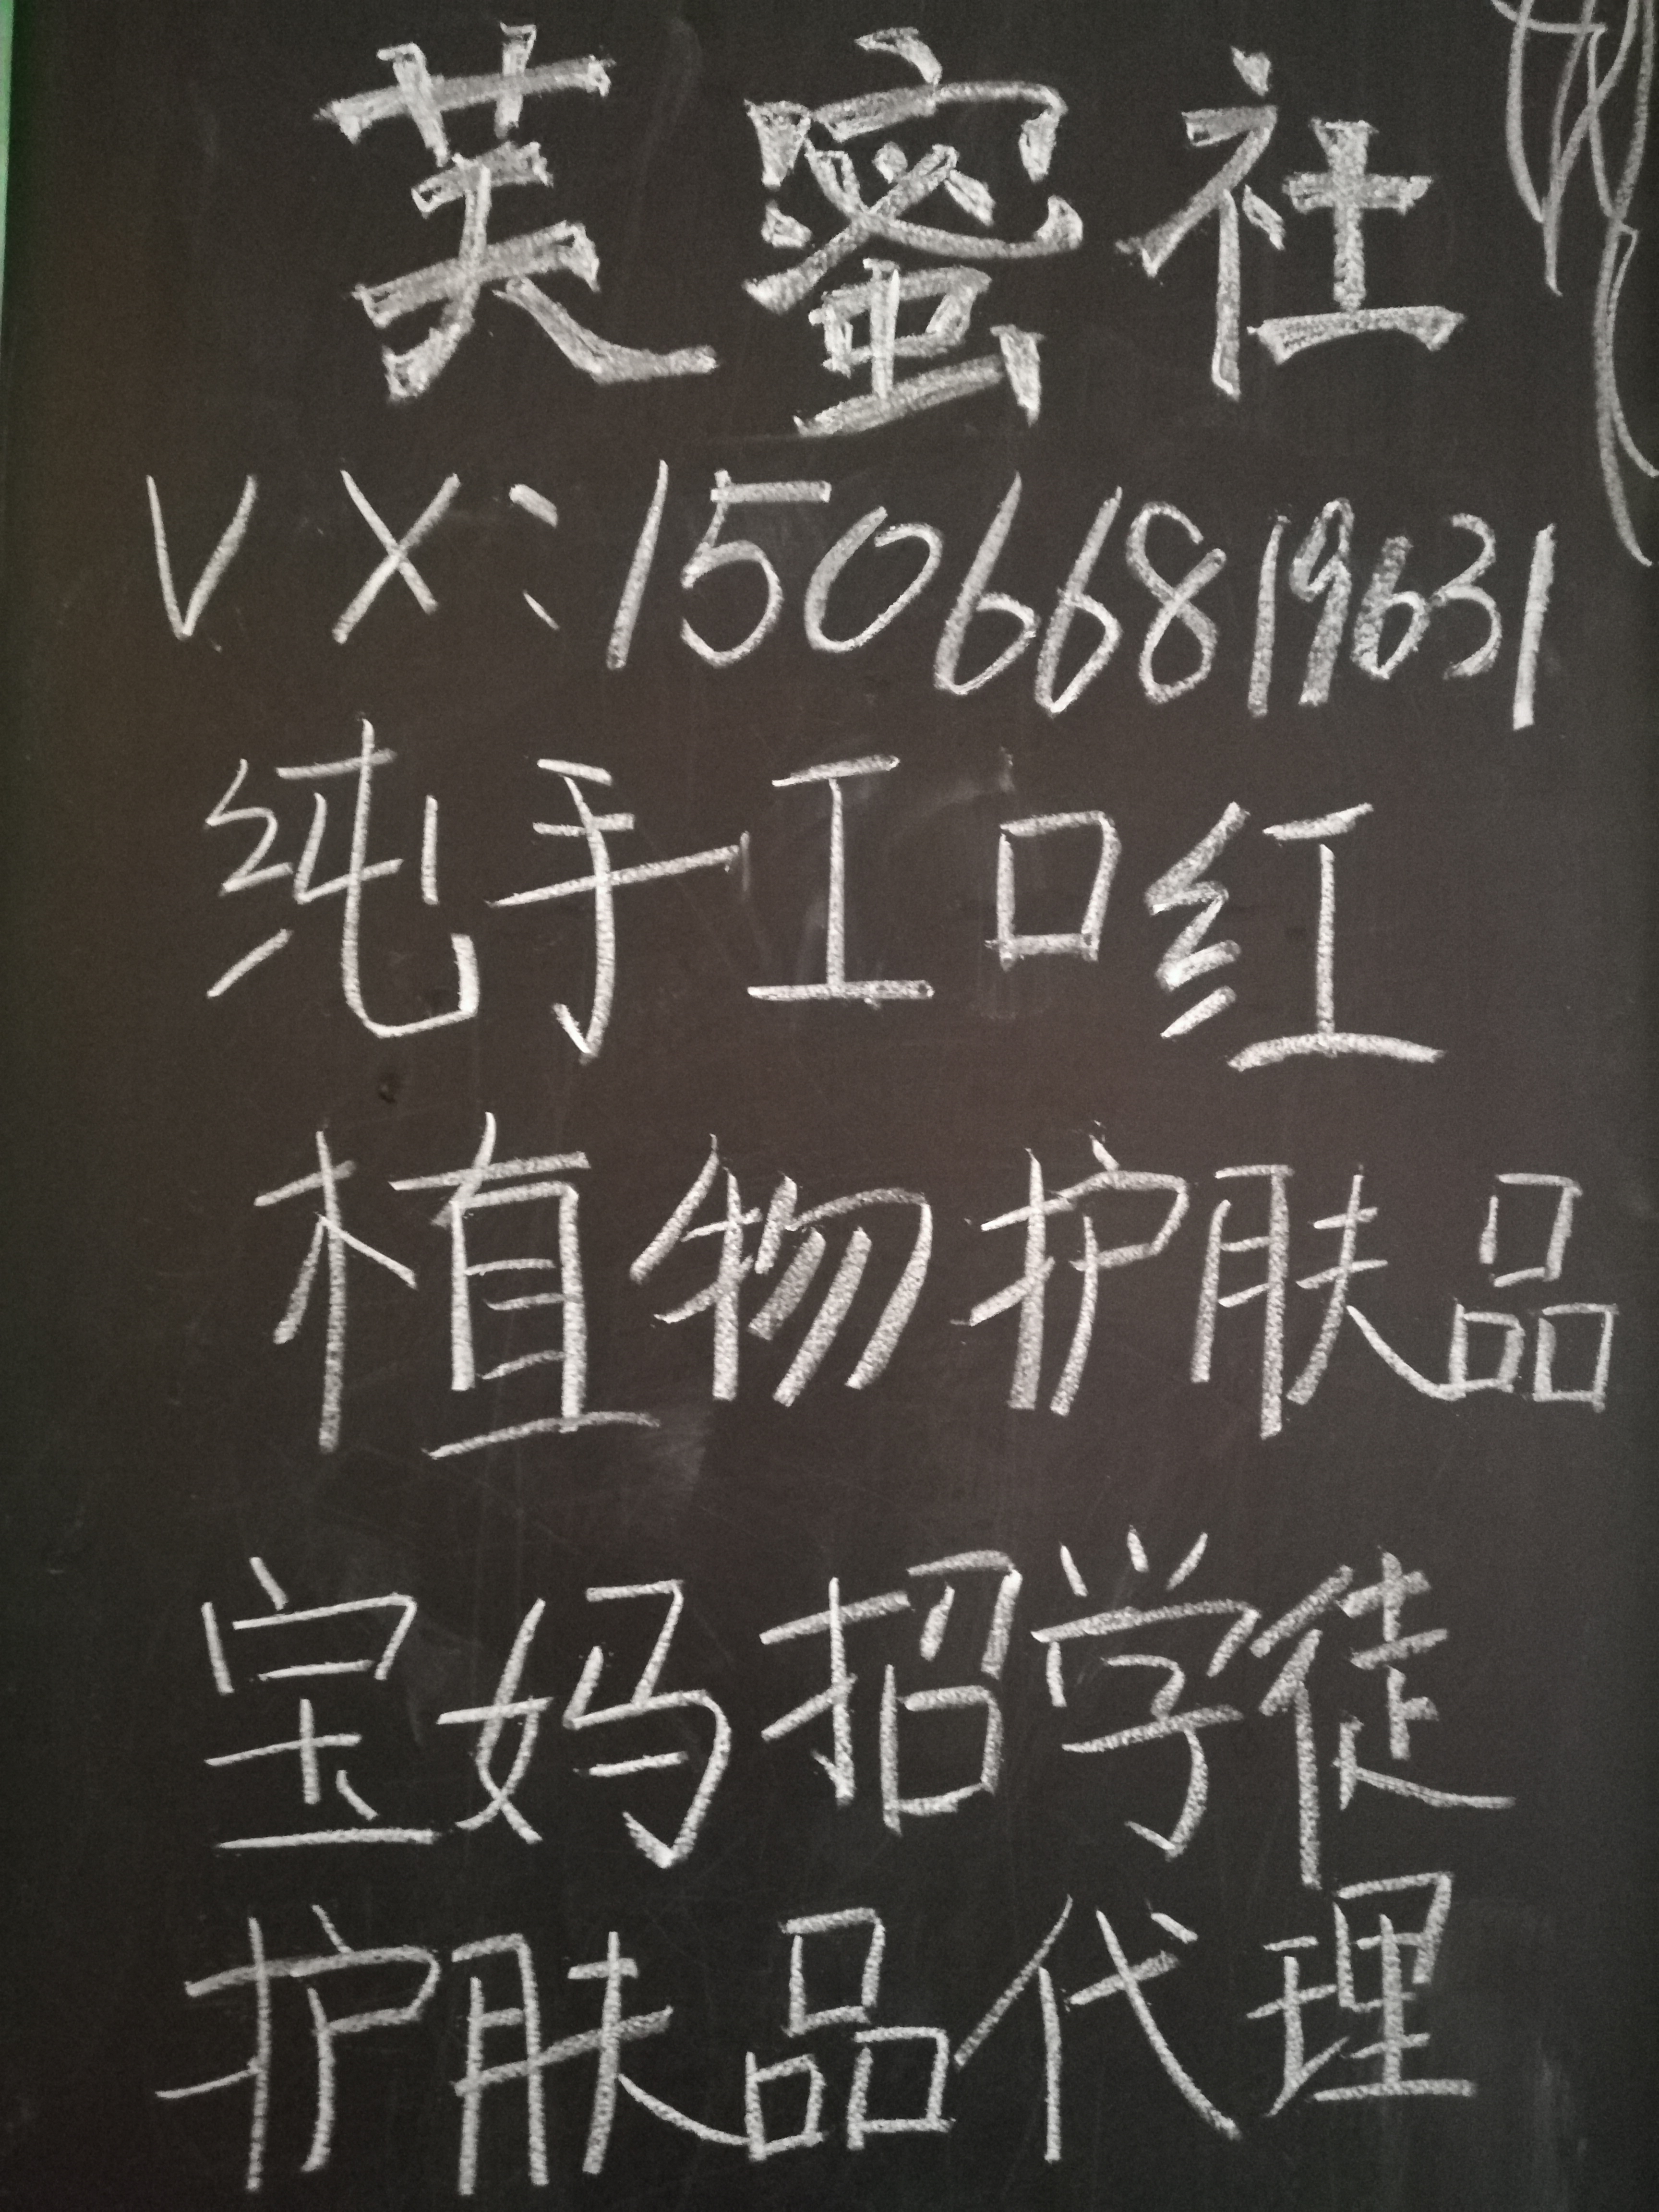 芙蜜社
VX:15066819631
纯手工口红
植物护肤品
宝妈招学徒
护肤品代理